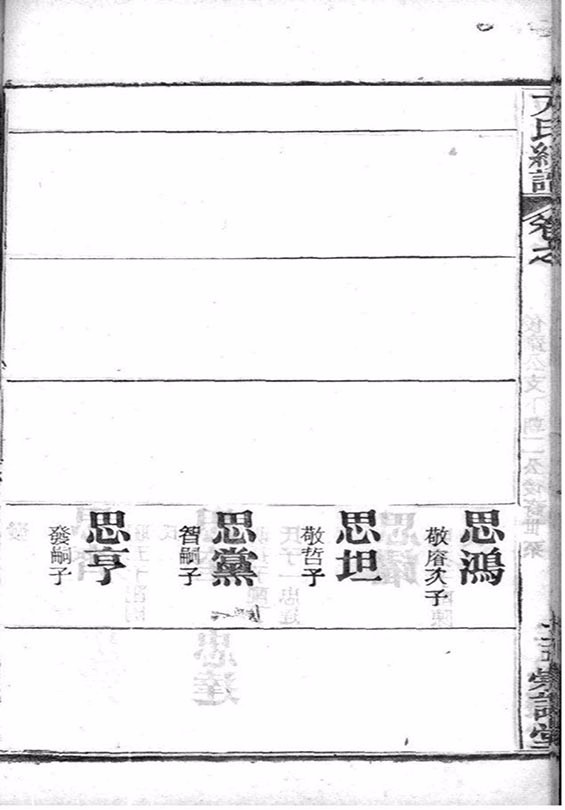 氏續譜
卷之
崇譜堂
思鴻
敬麿次子
思坦
敬哲子
思黨
智嗣子
思亨
發嗣子